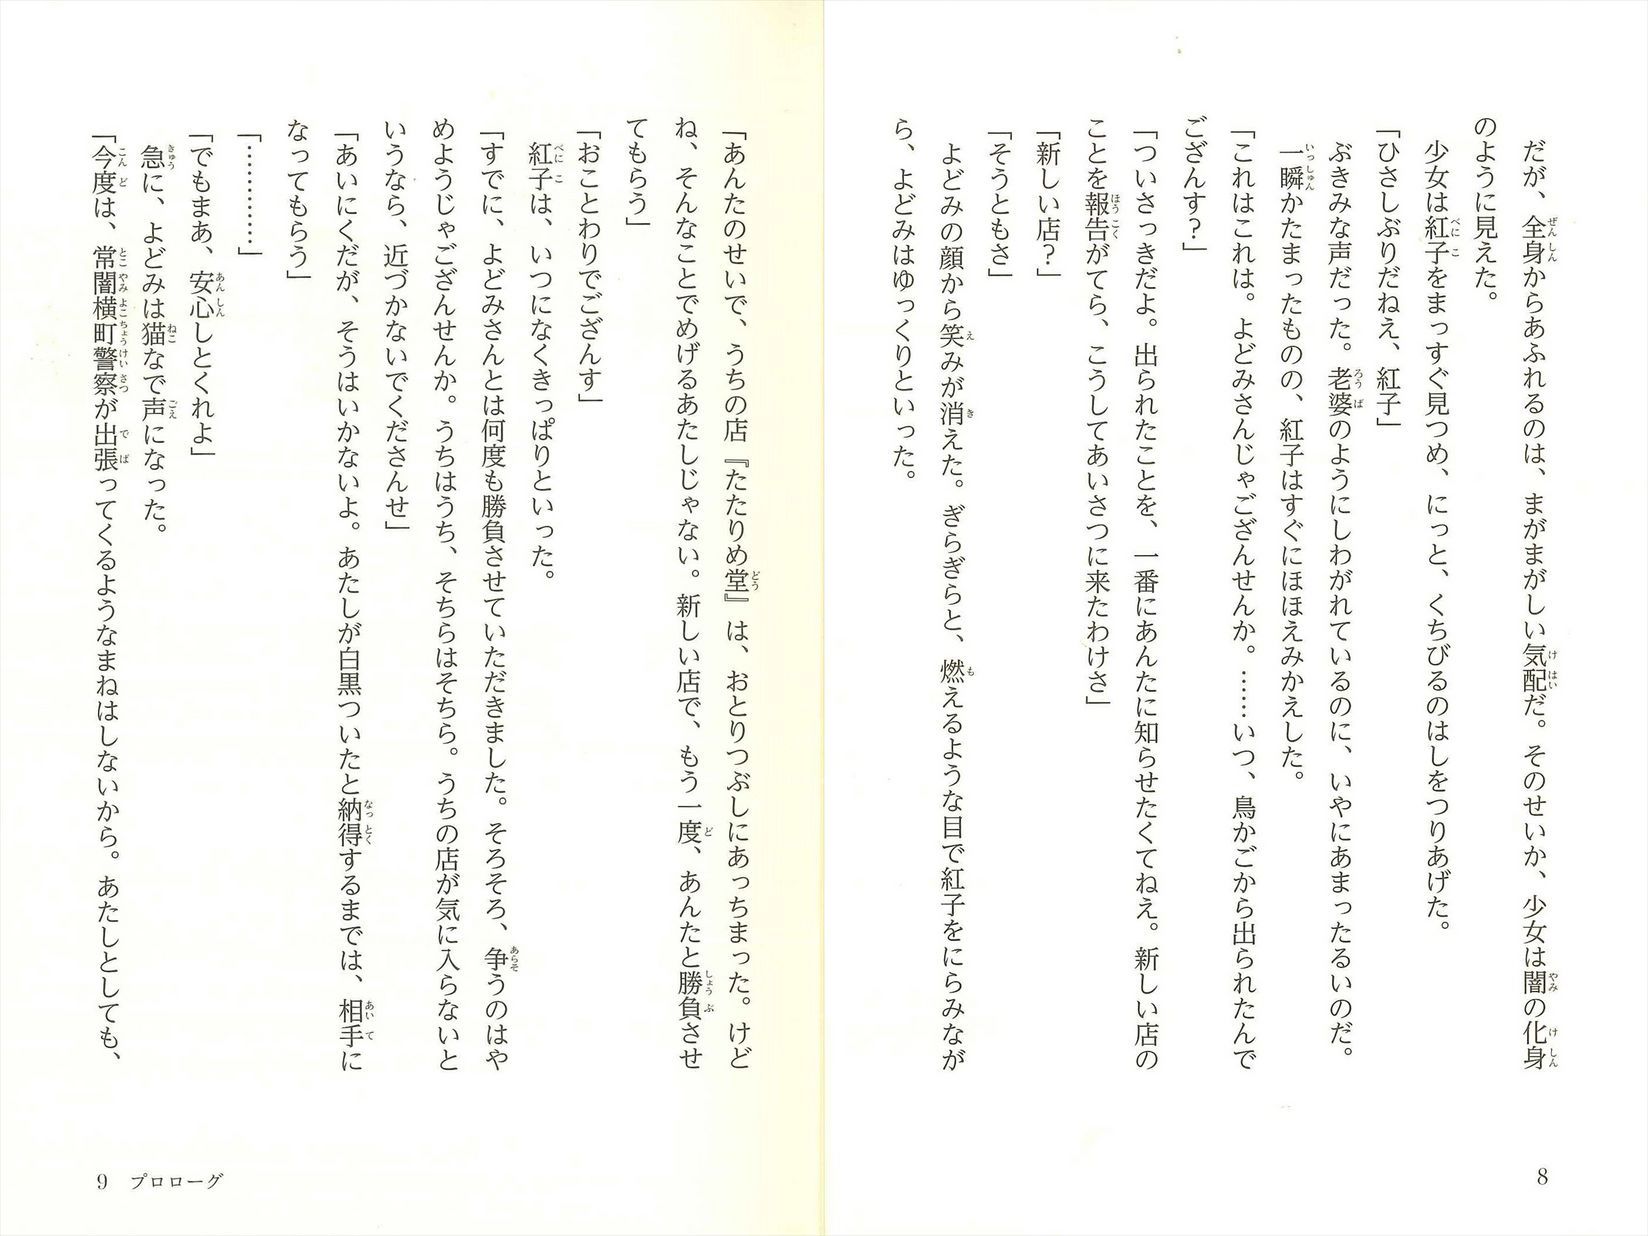 だが、全身からあふれるのは、まがまがしい気配だ。そのせいか、少女は闇の化身
のように見えた。
少女は紅子をまっすぐ見つめ、にっと、くちびるのはしをつりあげた。
「ひさしぶりだねえ、紅子」
ぶきみな声だった。老婆のようにしわがれているのに、いやにあまったるいのだ。
一瞬かたまったものの、紅子はすぐにほほえみかえした。
「これはこれは。よどみさんじゃござんせんか。……いつ、鳥かごから出られたんで
ござんす?」
「ついさっきだよ。出られたことを、一番にあんたに知らせたくてねえ。新しい店の
ことを報告がてら、こうしてあいさつに来たわけさ」
「新しい店?」
「そうともさ」
よどみの顔から笑みが消えた。ぎらぎらと、燃えるような目で紅子をにらみなが
ら、よどみはゆっくりといった。
8
「あんたのせいで、うちの店『たたりめ堂』は、おとりつぶしにあっちまった。けど
ね、そんなことでめげるあたしじゃない。新しい店で、もう一度、あんたと勝負させ
てもらう」
「おことわりでござんす」
紅子は、いつになくきっぱりといった。
「すでに、よどみさんとは何度も勝負させていただきました。そろそろ、争うのはや
めようじゃござんせんか。うちはうち、そちらはそちら。うちの店が気に入らないと
いうなら、近づかないでくださんせ」
「あいにくだが、そうはいかないよ。あたしが白黒ついたと納得するまでは、相手に
なってもらう」
「…………」
「でもまあ、安心しとくれよ」
急に、よどみは猫なで声になった。
「今度は、常闇横町警察が出張ってくるようなまねはしないから。あたしとしても、
9 プロローグ